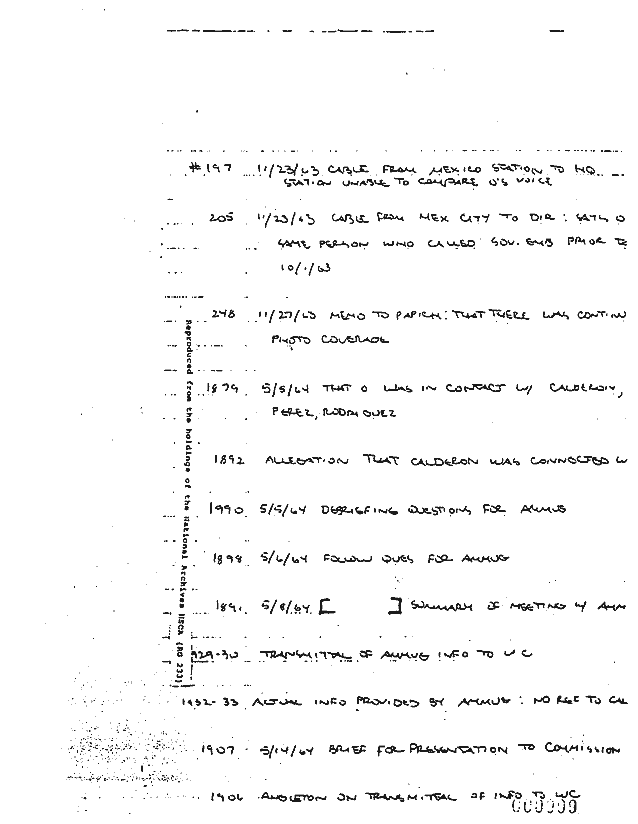 #197 11/23/63 CABLE FROM MEXICO STATION TO HQ
STATION UNABLE TO COMPARE O'S VOICE
205 11/23/63 CABLE FROM MEX CITY TO DIR: SAYS O
SAME PERSON WHO CALLED SOV. EMB PRIOR TO
10/1/63
248 11/27/63 MEMO TO PAPICH: THAT THERE WAS CONTINU
PHOTO COVERAGE
1879 5/5/64 THAT O WAS IN CONTACT W/ CALDERON,
PEREZ, RODRIGUEZ
1892 ALLEGATION THAT CALDERON WAS CONNECTED W
1990 5/5/64 DEBRIEFING QUESTIONS FOR AMMUG
1898 5/6/64 FOLLOW QUES FOR AMMUG
1891 5/8/64 [ ] SUMMARY OF MEETING W/ AMM
1929-30 TRANSMITTAL OF AMMUG INFO TO WC
1932-33 ACTUAL INFO PROVIDED BY AMMUG: NO REF TO CAL
1907 5/14/64 BRIEF FOR PRESENTATION TO COMMISSION
1906 ANGLETON ON TRANSMITTAL OF INFO TO WC
Reproduced from the holdings of the National Archives HSCA (RG 233)